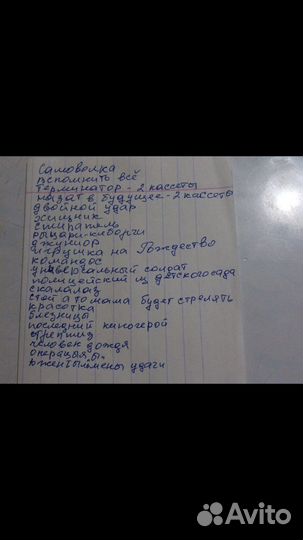 Самоволка
вспомнить всё
терминатор - 2 кассеты
назат в будущее - 2 кассеты
двойной удар
хищник
стиратель
рыцари-киборги
джуниор
игрушка на Рождество
командос
универсальный солдат
полицейский из детского сада
скалалаз
стой а то мама будет стрелять
красотка
близницы
последний киногерой
стрептиз
человек дождя
операцыя "ы"
джентылмены удачи
Avito